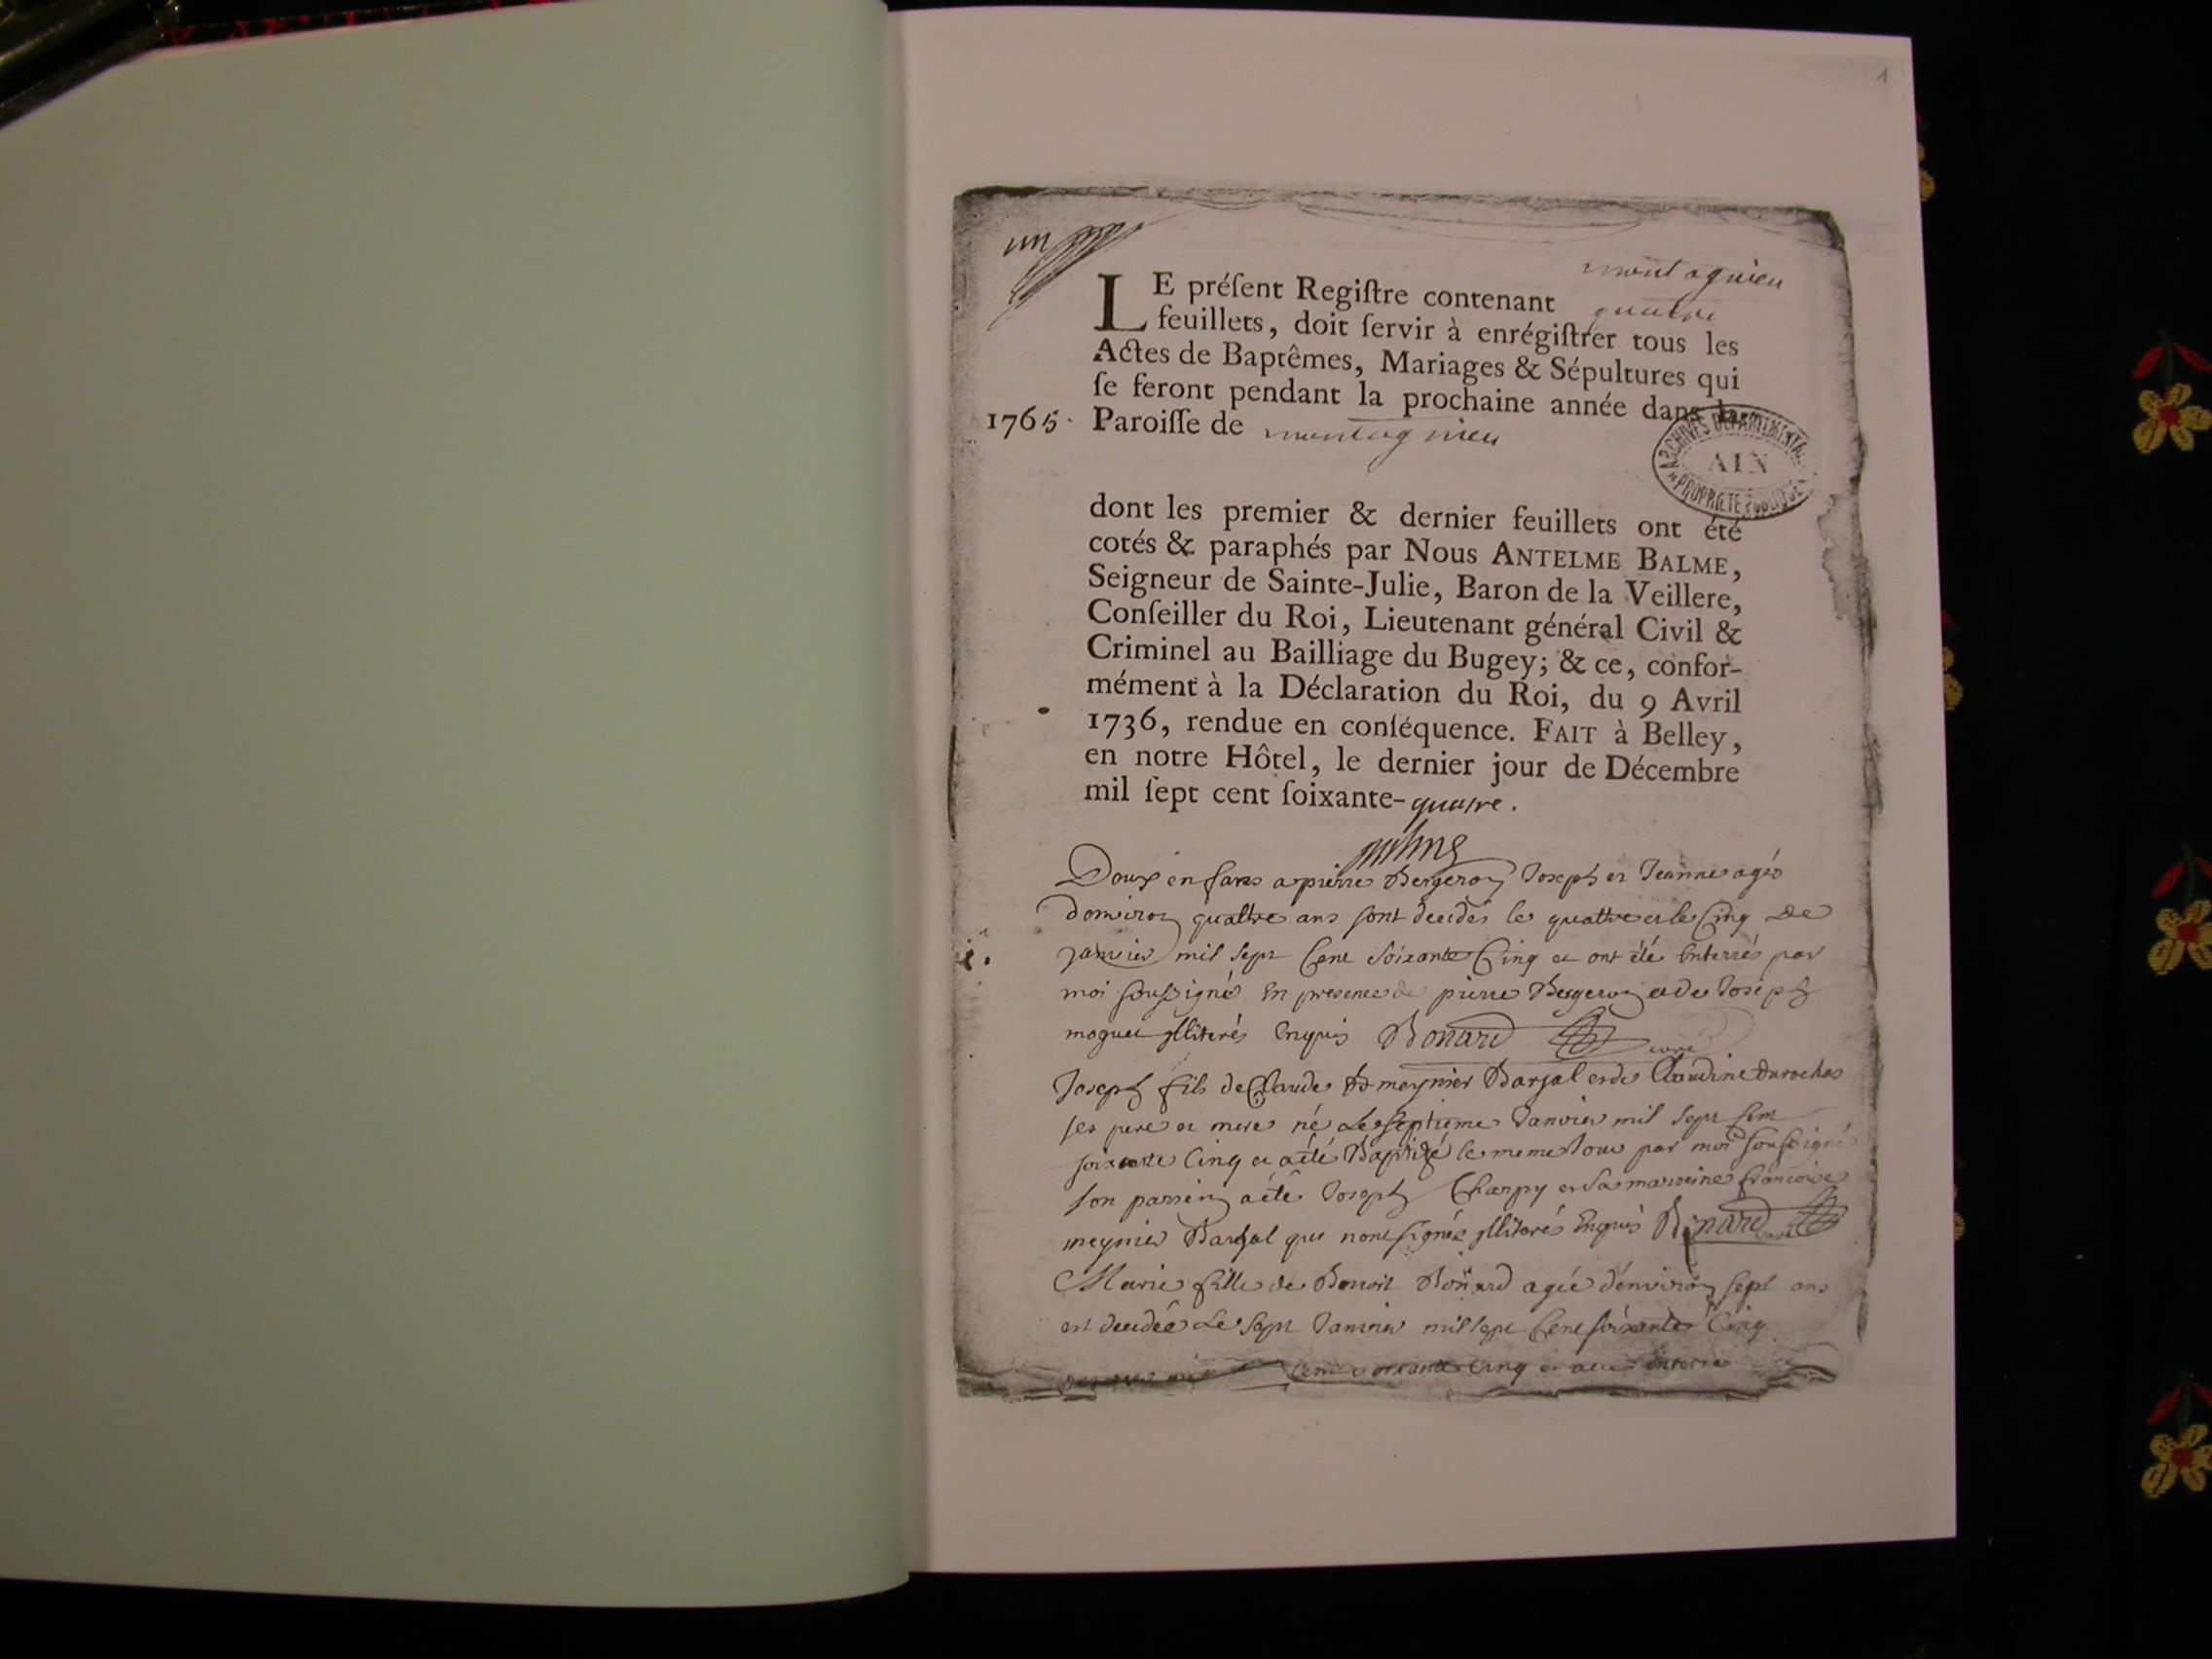 1
un
montagnieu
LE préſent Regiſtre contenant quatre
feuillets, doit ſervir à enrégiſtrer tous les
Actes de Baptêmes, Mariages & Sépultures qui
ſe feront pendant la prochaine année dans la
1765. Paroiſſe de montagnieu
ARCHIVES DEPARTEMENTALES
AIN
PROPRIETE PUBLIQUE
dont les premier & dernier feuillets ont été
cotés & paraphés par Nous ANTELME BALME,
Seigneur de Sainte-Julie, Baron de la Veillere,
Conſeiller du Roi, Lieutenant général Civil &
Criminel au Bailliage du Bugey; & ce, confor-
mément à la Déclaration du Roi, du 9 Avril
1736, rendue en conſéquence. FAIT à Belley,
en notre Hôtel, le dernier jour de Décembre
mil ſept cent ſoixante-quatre.
Doux enfans a pierre Bergeron Joseph et Jeanne agés
d'omiron quattre ans sont decidés le quattre et le Cinq de
janvier mil sept Cent Soixante Cinq et ont été Enterrés par
moi soussigné En presence de pierre Bergeron et de Joseph
moguet illiterés Enquis Bonard curé
Joseph fils de Claude meynier Barjal et de Claudine Durochas
ses pere et mere né Le septieme Janvier mil sept Cent
soixante Cinq et a été Baptizé le meme Jour par moi soussigné
son parrein a été Joseph Charpy et sa marreine francoise
meynier Barjal qui n'ont signés illiterés Enquis Bonard curé
Marie fille de Benoit Bonard agée d'environ sept ans
est decidée Le sept Janvier mil sept Cent soixante Cinq
Cent soixante Cinq et a été enterré